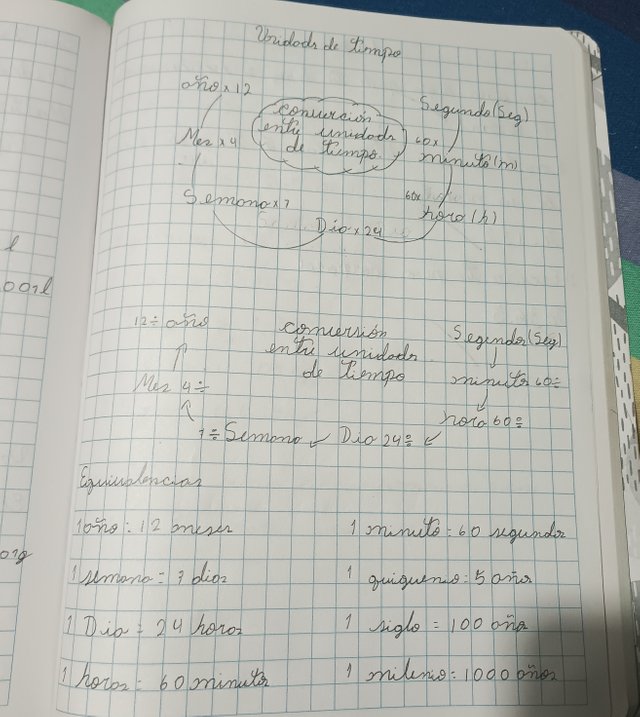 Unidads de tiempo
año x 12
conversión
entre unidads
de tiempo
Segundo (Seg)
Mes x 4
60x
minuto (m)
Semana x 7
60x
hora (h)
Dia x 24
12 ÷ año
conversión
entre unidads
de tiempo
Segundos (Seg)
Mes 4 ÷
minutos 60 ÷
hora 60 ÷
7 ÷ Semana
Dia 24 ÷
Equivalencias
1 año : 12 meses
1 minuto = 60 segundos
1 semana = 7 dias
1 quiquenio : 5 años
1 Dia = 24 horas
1 siglo = 100 años
1 horas = 60 minutos
1 milenio = 1000 años
l
001l
org